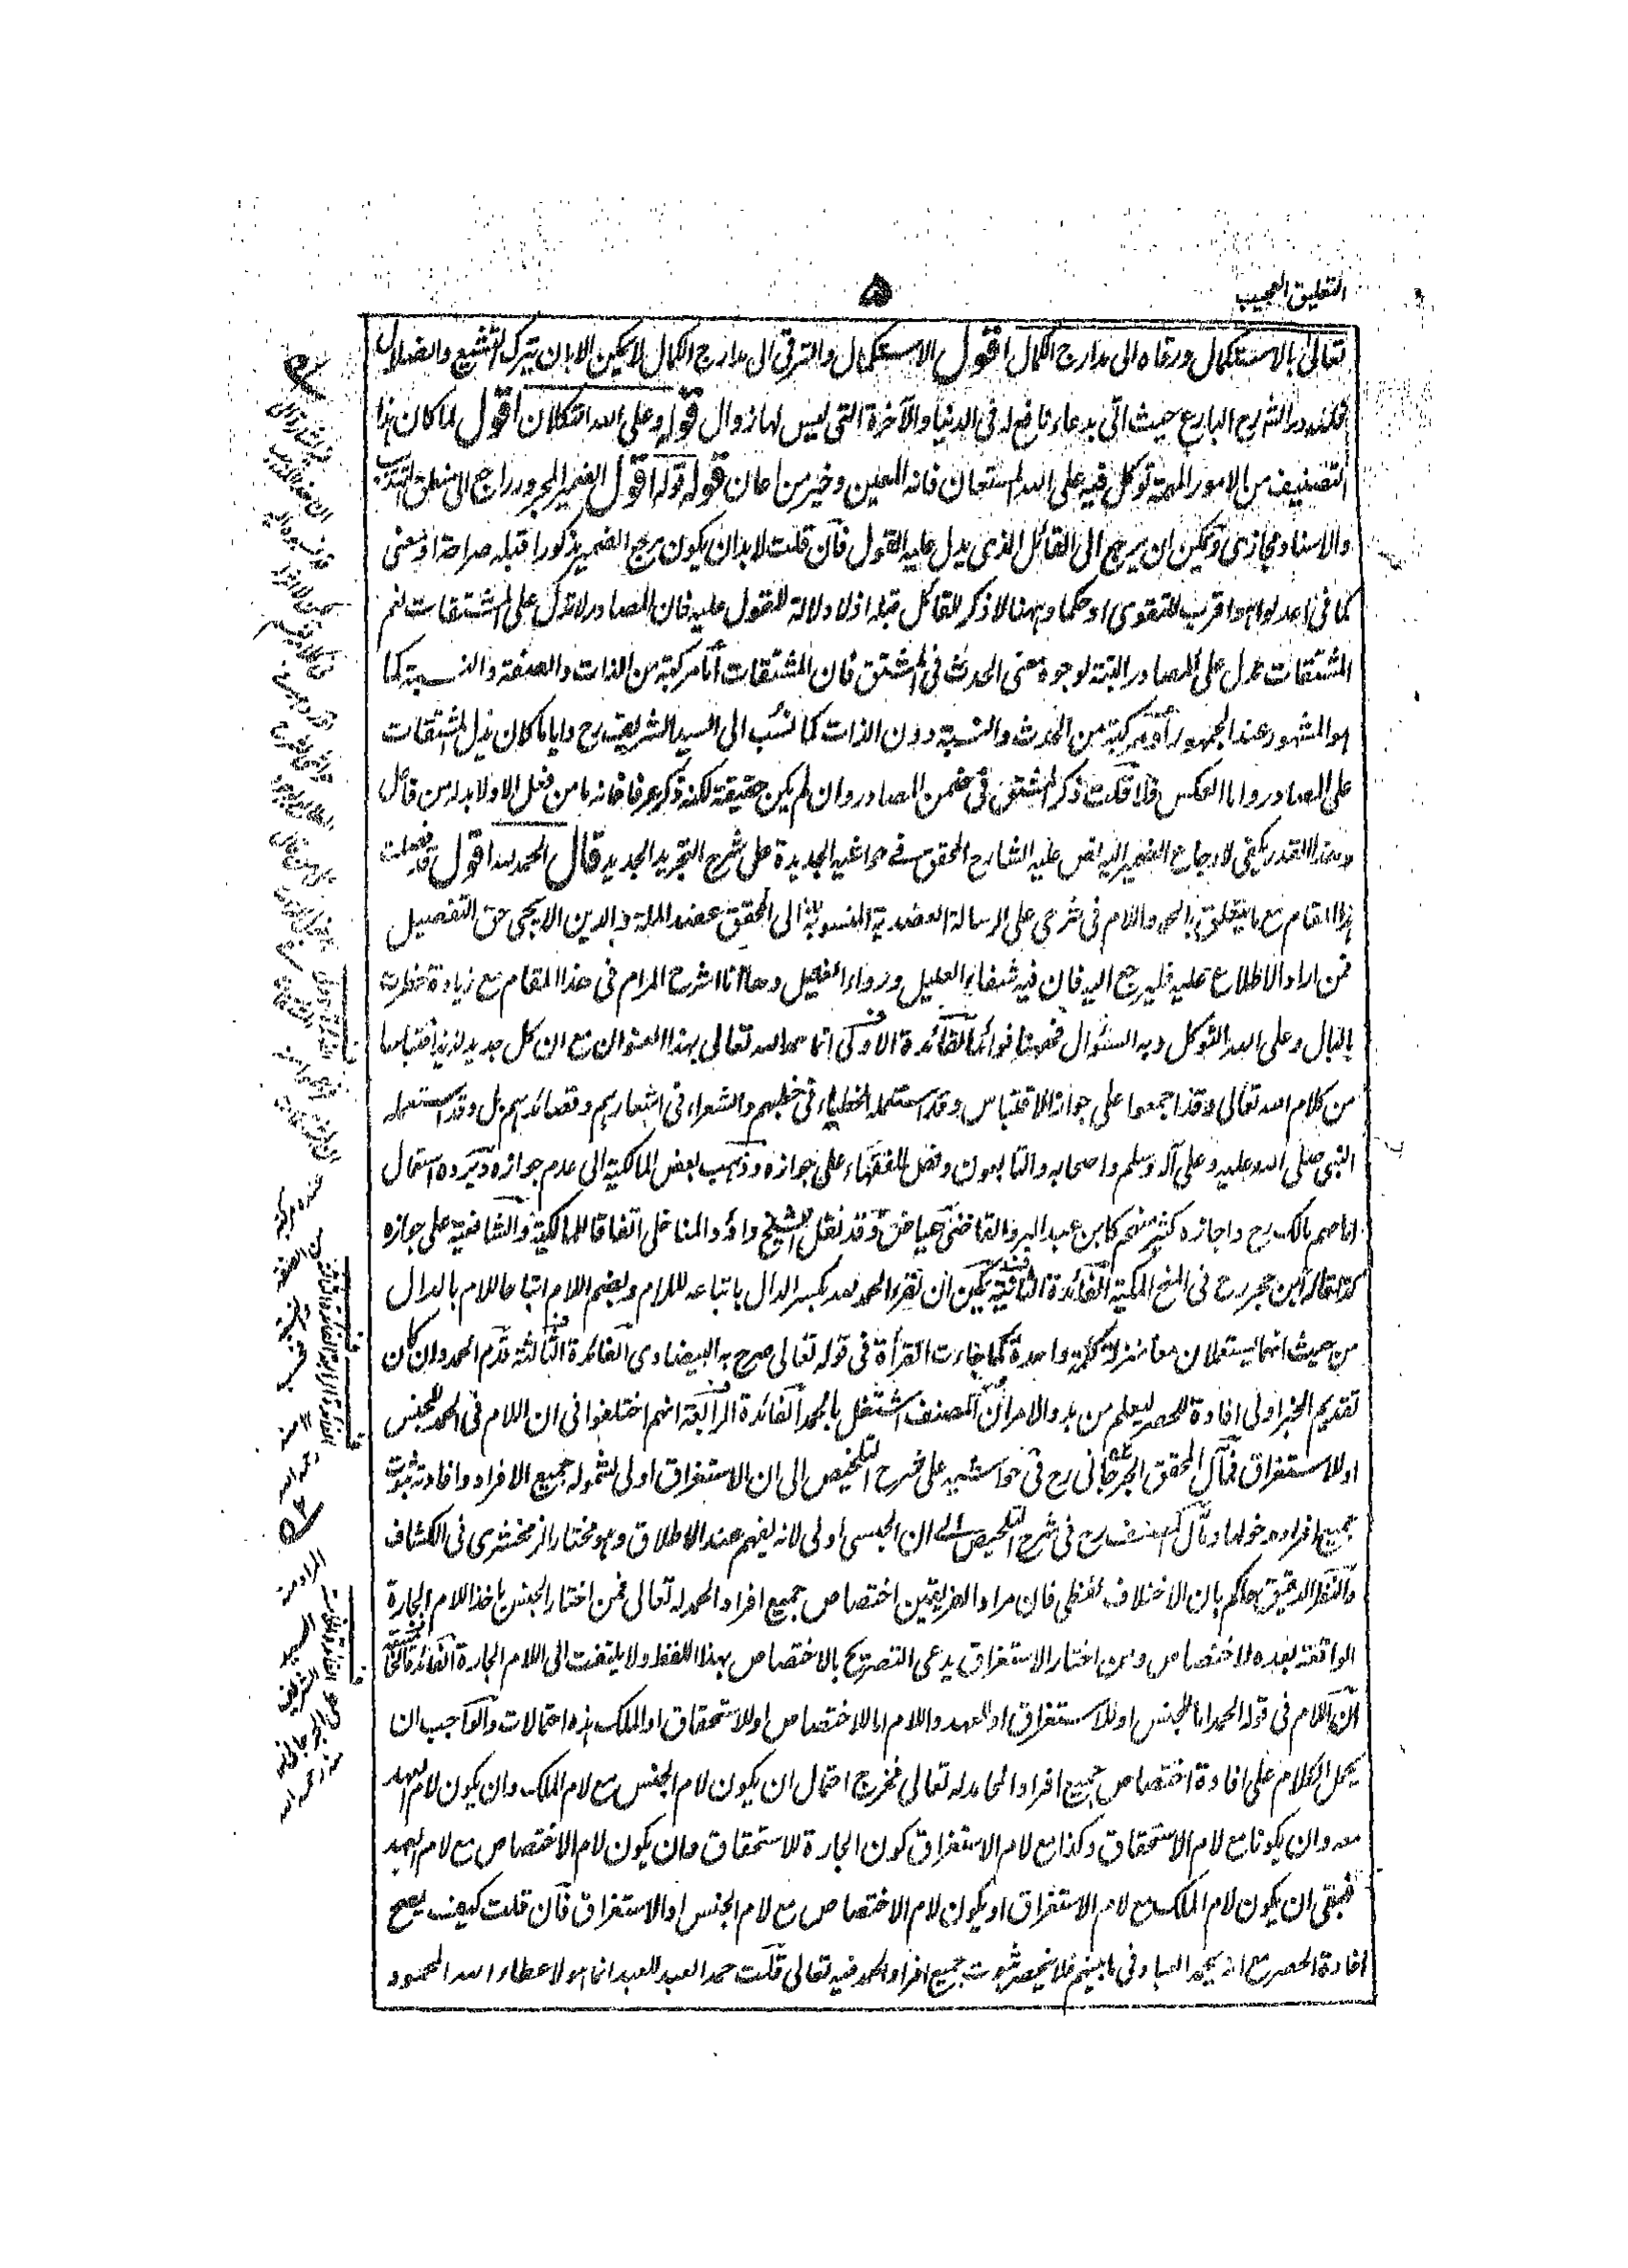 التعليق العجيب
۵
تعالى بالاستكمال ورقاه الى مدارج الكمال اقول الاستكمال والترقى الى مدارج الكمال لا يمكن الا بان يترك التشيع والضلال
فلله در الشارح البارع حيث اتى بدعاء نافع له فى الدنيا والآخرة التى ليس لها زوال قوله وعلى الله اتكلان اقول لما كان هذا
التصنيف من الامور المهمة توكل فيه على الله المستعان فانه المعين وخير من اعان قوله قوله اقول الضمير المجرور راجع الى مصنف التهذيب
والاسناد مجازى ويمكن ان يرجع الى القائل الذى يدل عليه القول فان قلت لابد ان يكون مرجع الضمير مذكورا قبله صراحة او معنى
كما فى اعدلوا هو اقرب للتقوى او حكما وههنا لا ذكر للقائل قبله اذ لا دلالة للقول عليه فان المصادر لا تدل على المشتقات نعم
المشتقات تدل على المصادر البتة لوجود معنى الحدث فى المشتق فان المشتقات اما مركبة من الذات والصفة والنسبة كما
هو المشهور عند الجمهور او مركبة من الحدث والنسبة دون الذات كما نسب الى السيد الشريف رح وايا ما كان تدل المشتقات
على المصادر واما العكس فلا قلت ذكر المشتق فى ضمن المصادر وان لم يكن حقيقة لكنه ذكر عرفا فانه ما من فعل الا ولابد له من فاعل
وهذا القدر يكفى لارجاع الضمير اليه نص عليه الشارح المحقق فى حواشيه الجديدة على شرح التجريد الجديد قال الحمد لله اقول قد فصلت
هذا المقام مع ما يتعلق بالحمد واللام فى شرحى على الرسالة العضدية المنسوبة الى المحقق عضد الملة والدين الايجى حق التفصيل
فمن اراد الاطلاع عليه فليرجع اليه فان فيه شفاء العليل ورواء الغليل وها انا اشرح المرام فى هذا المقام مع زيادة خطرت
بالبال وعلى الله التوكل وبه السئوال فههنا فوائد الفائدة الاولى انما حمد الله تعالى بهذا العنوان مع ان كل جديد لذيذ اقتباسا
من كلام الله تعالى وقد اجمعوا على جواز الاقتباس وقد استعمله الخطباء فى خطبهم والشعراء فى اشعارهم وقصائدهم بل وقد استعمله
النبى صلى الله عليه وعلى آله وسلم واصحابه والتابعون ونص الفقهاء على جوازه وذهب بعض المالكية الى عدم جوازه ويرده استعمال
امامهم مالك رح واجازه كثير منهم كابن عبد البر والقاضى عياض وقد نقل الشيخ داؤد المناخلى اتفاقا للمالكية والشافعية على جوازه
كذا قال ابن حجر رح فى المنح المكية الفائدة الثانية يمكن ان نقرء الحمد لله بكسر الدال باتباعه للام وبضم اللام اتباعا للام بالدال
من حيث انهما يستعملان معا منزلة كلمة واحدة كما جاءت القرأة فى قوله تعالى صرح به البيضاوى الفائدة الثالثة قدم الحمد وان كان
تقديم الخبر اولى افادة للحصر ليعلم من بدو الامر ان المصنف اشتغل بالحمد الفائدة الرابعة انهم اختلفوا فى ان اللام فى الحمد للجنس
او للاستغراق فمال المحقق الجرجانى رح فى حواشيه على شرح التلخيص الى ان الاستغراق اولى لشموله جميع الافراد وافادته ثبوت
جميع افراده خولها ومال المصنف رح فى شرح التلخيص الى ان الجنسى اولى لانه يفهم عند الاطلاق وهو مختار الزمخشرى فى الكشاف
والنظر الدقيق حاكم بان الاختلاف لفظى فان مراد الفريقين اختصاص جميع افراد الحمد له تعالى فمن اختار الجنس ياخذ اللام الجارة
الواقعة بعده للاختصاص ومن اختار الاستغراق يدعى التصريح بالاختصاص بهذا اللفظ ولا يلتفت الى اللام الجارة الفائدة الخامسة
ان اللام فى قوله الحمد اما للجنس او للاستغراق او العهد واللام اما للاختصاص او للاستحقاق او الملك هذه احتمالات والواجب ان
يحمل الكلام على افادة اختصاص جميع افراد المحامد له تعالى فخرج احتمال ان يكون لام الجنس مع لام الملك وان يكون لام العهد
معه وان يكونا مع لام الاستحقاق وكذا مع لام الاستغراق كون الجارة للاستحقاق وان يكون لام الاختصاص مع لام العهد
فبقى ان يكون لام الملك مع لام الاستغراق او يكون لام الاختصاص مع لام الجنس او الاستغراق فان قلت كيف يصح
افادة الحصر مع انه يحمد العباد فى ما بينهم فلا ينحصر ثبوت جميع افراد الحمد فيه تعالى قلت حمد العبد للعبد انما هو لاعطاء الله المحمود
عنده مركبة
من الصفة
والنسبة فحسب
منه
رحمه الله
المراد منه
السيد
الشريف
على الجرجانى
منه رحمه الله